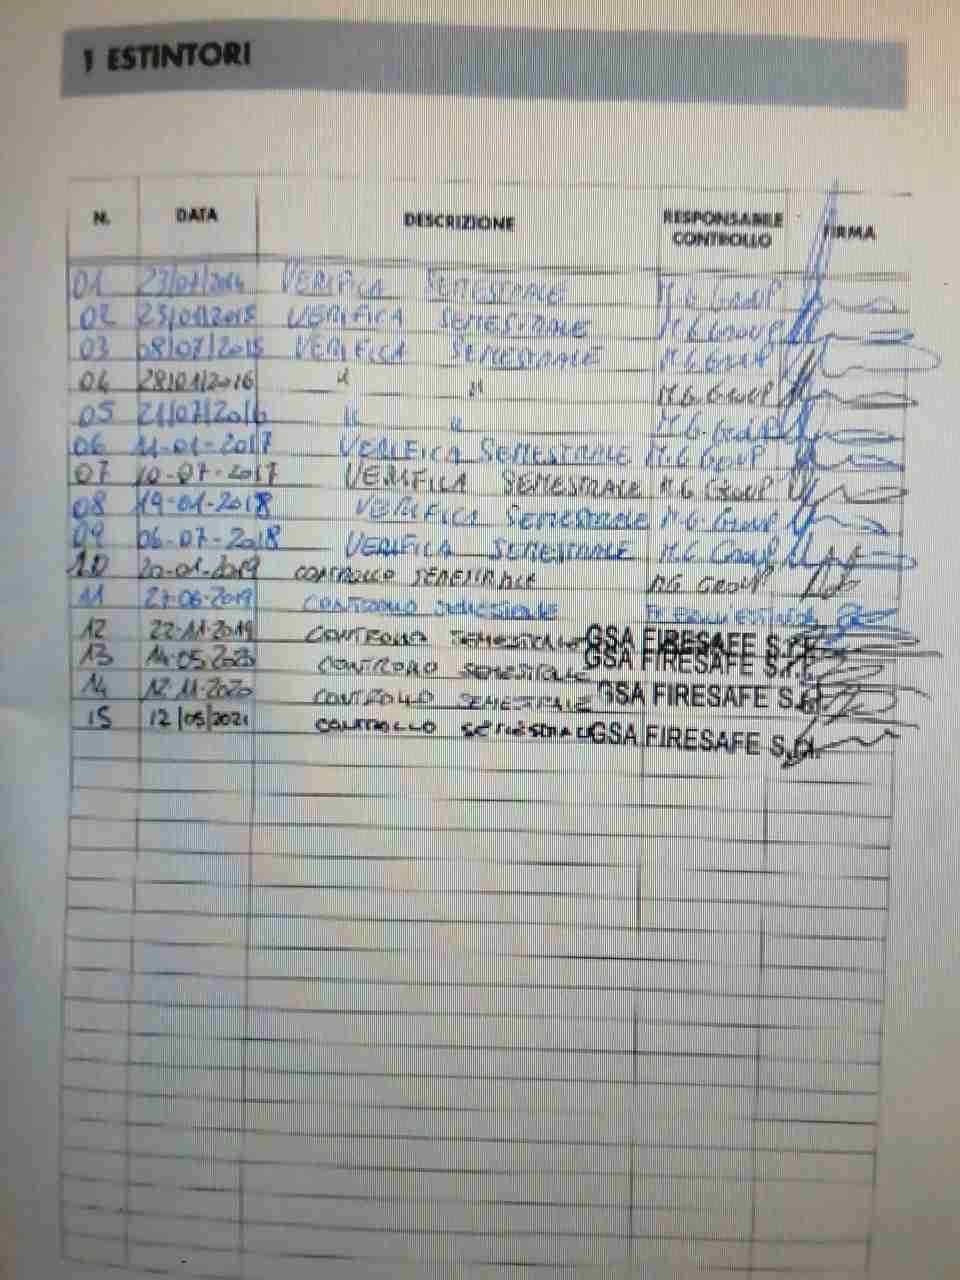 1 ESTINTORI
N. DATA DESCRIZIONE RESPONSABILE CONTROLLO FIRMA
01 23/07/2014 VERIFICA SEMESTRALE M.G. GROUP
02 23/01/2015 VERIFICA SEMESTRALE M.G. GROUP
03 08/07/2015 VERIFICA SEMESTRALE M.G. GROUP
04 28/01/2016 " " M.G. GROUP
05 21/07/2016 " " M.G. GROUP
06 11-01-2017 VERIFICA SEMESTRALE M.G GROUP
07 10-07-2017 VERIFICA SEMESTRALE M.G GROUP
08 19-01-2018 VERIFICA SEMESTRALE M.G. GROUP
09 06-07-2018 VERIFICA SEMESTRALE M.G GROUP
10 20-01-2019 CONTROLLO SEMESTRALE MG GROUP
11 27-06-2019 CONTROLLO SEMESTRALE
12 22-11-2019 CONTROLLO SEMESTRALE GSA FIRESAFE S.r.l.
13 14-05-2020 CONTROLLO SEMESTRALE GSA FIRESAFE S.r.l.
14 12-11-2020 CONTROLLO SEMESTRALE GSA FIRESAFE S.r.l.
15 12/05/2021 CONTROLLO SEMESTRALE GSA FIRESAFE S.r.l.